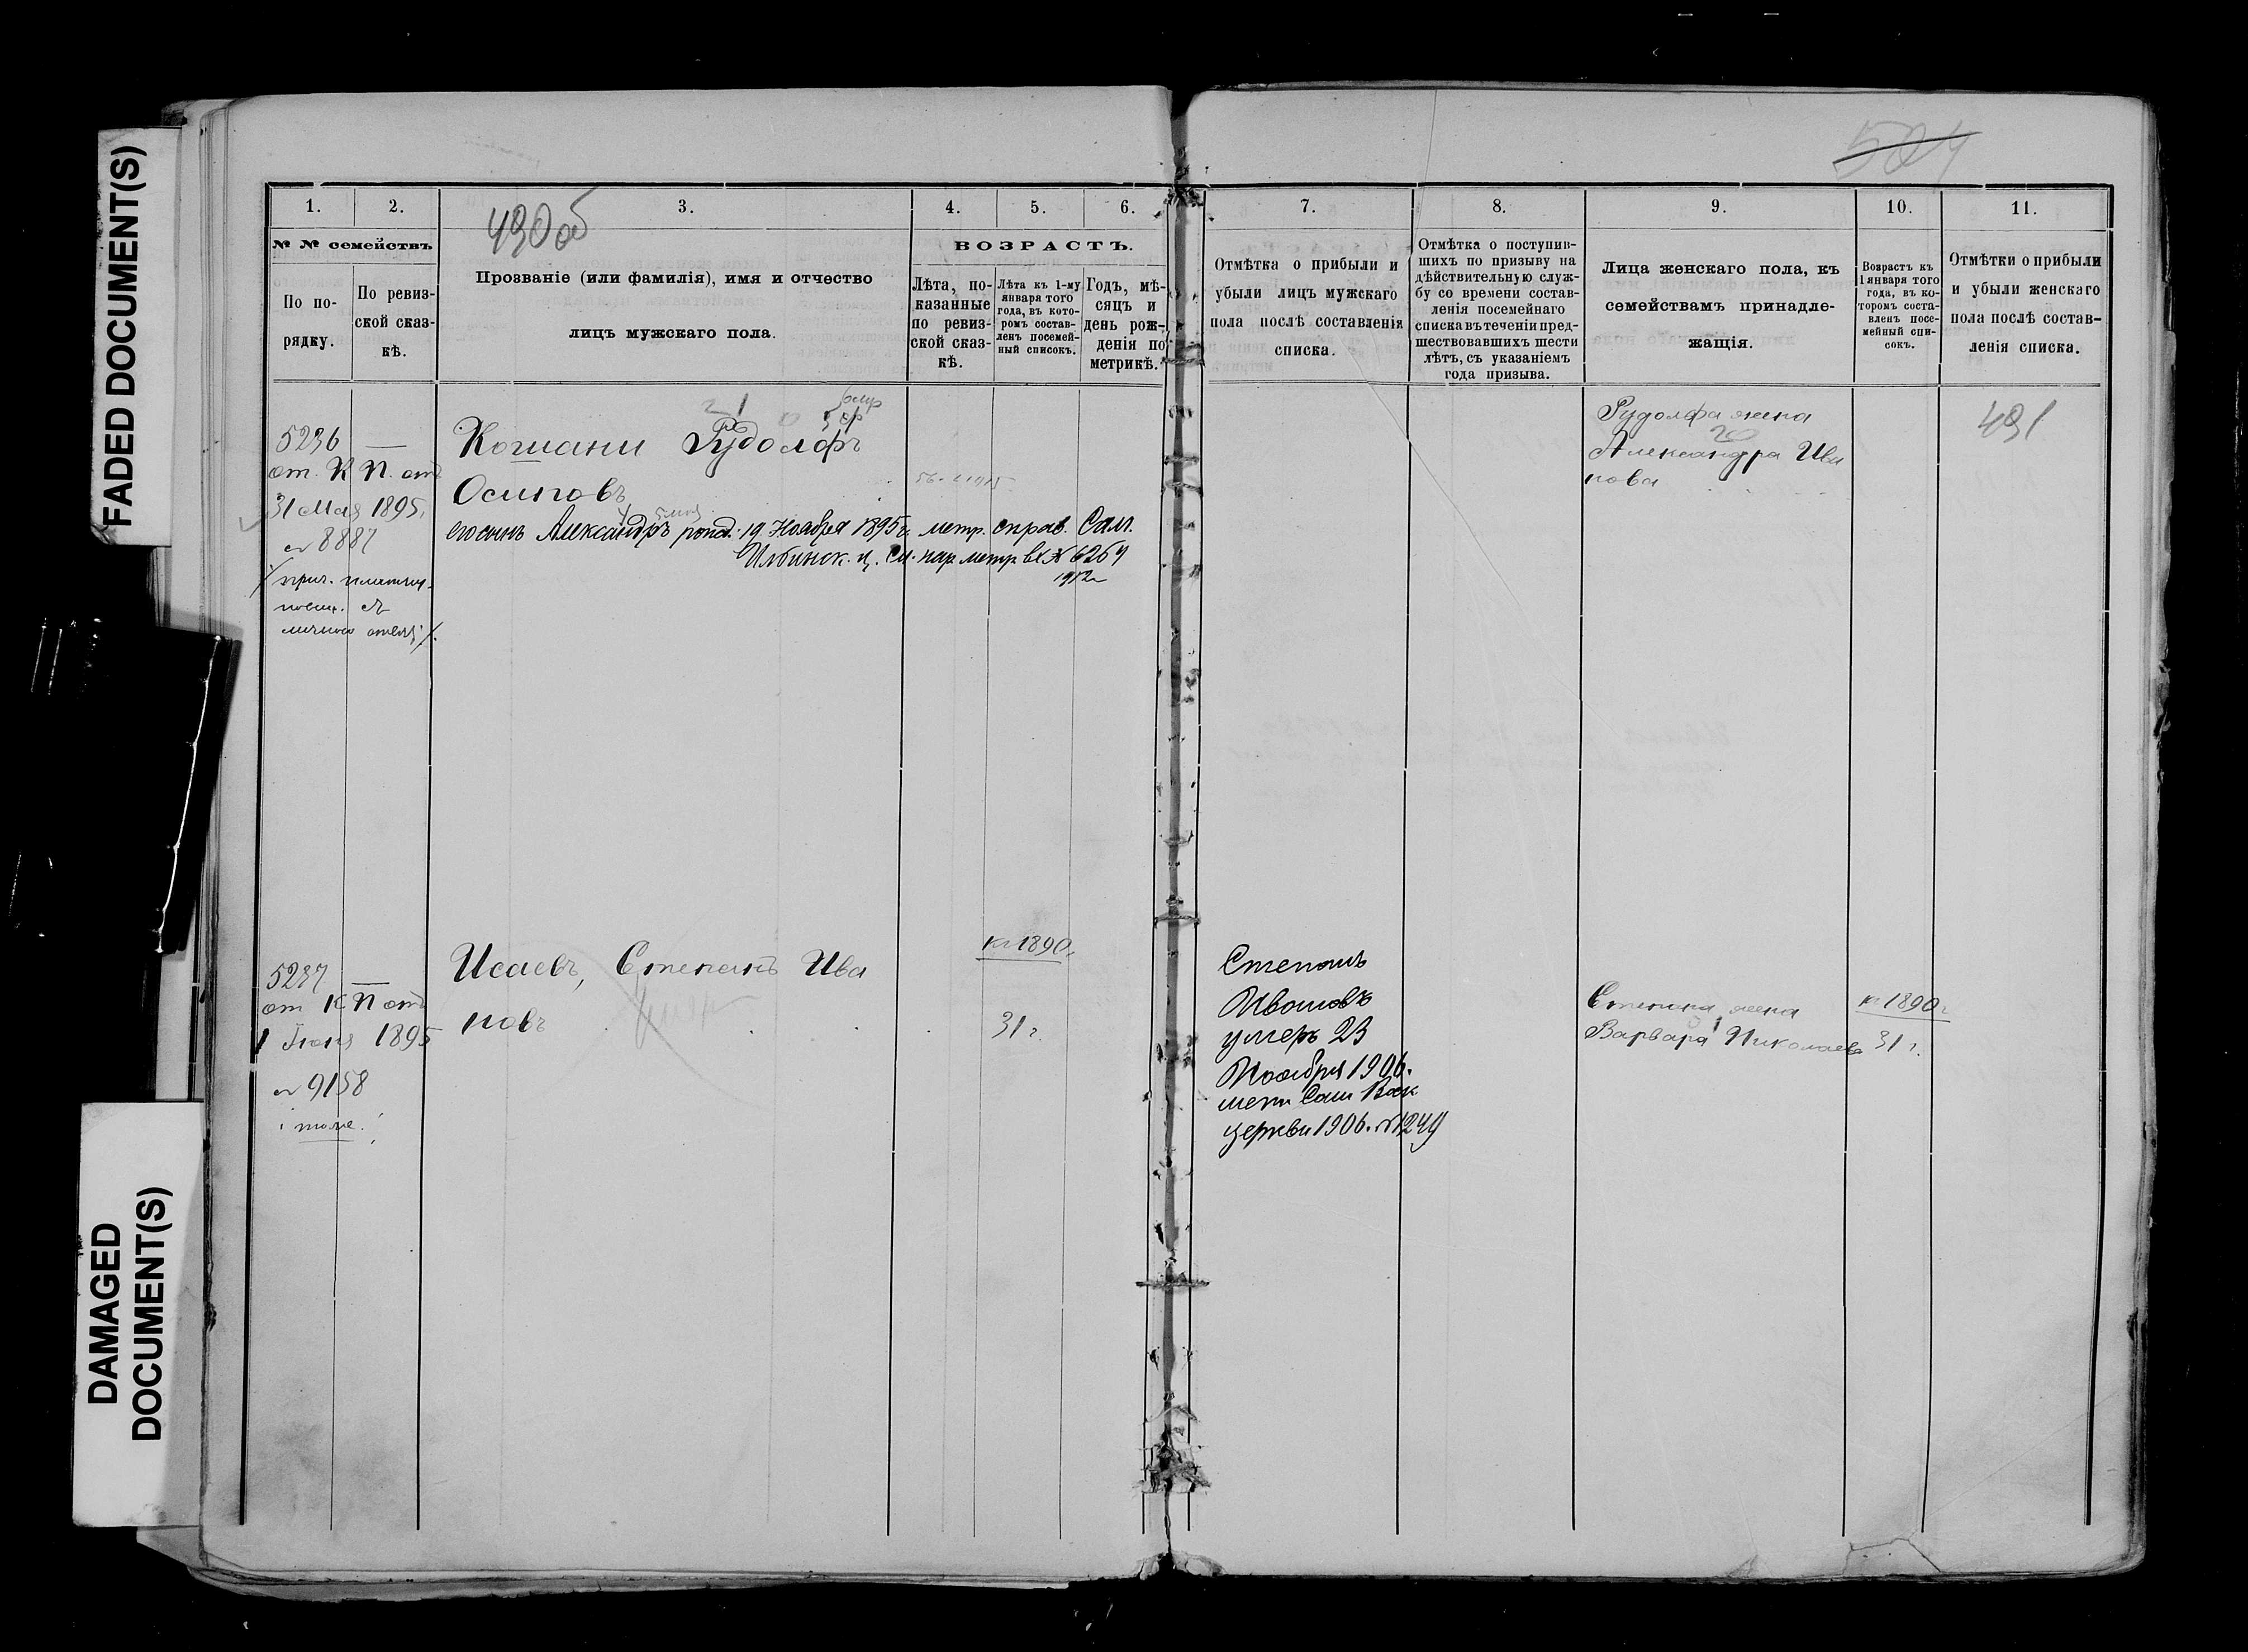 FADED DOCUMENT(S)
DAMAGED
DOCUMENT(S)
524
1.
2.
3.
4.
5.
6.
7.
8.
9.
10.
11.
490 об
№ № семействъ
По по-
рядку.
По ревиз-
ской сказ-
кѣ.
Прозваніе (или фамилія), имя и отчество
лицъ мужскаго пола.
ВОЗРАСТЪ.
Лѣта, по-
казанные
по ревиз-
ской сказ-
кѣ.
Лѣта къ 1-му
января того
года, въ кото-
ромъ состав-
ленъ посемей-
ный списокъ.
Годъ, мѣ-
сяцъ и
день рож-
денія по
метрикѣ.
Отмѣтка о прибыли и
убыли лицъ мужскаго
пола послѣ составленія
списка.
Отмѣтка о поступив-
шихъ по призыву на
дѣйствительную служ-
бу со времени состав-
ленія посемейнаго
списка въ теченіи пред-
шествовавшихъ шести
лѣтъ, съ указаніемъ
года призыва.
Лица женскаго пола, къ
семействамъ принадле-
жащія.
Возрастъ къ
1 января того
года, въ ко-
торомъ соста-
вленъ посе-
мейный спи-
сокъ.
Отмѣтки о прибыли
и убыли женскаго
пола послѣ состав-
ленія списка.
5236 —
от. К П. отд
31 Мая 1895.
№ 8887
Рудолфъ
Осиповъ
его сынъ Александръ рожд. 19 Ноября 1895 г. метр. справ. Сам.
Ильинск. ц. См. пар метр вх № 6264
1912 г
Рудолфа жена
Александра Ива
нова
491
5237 —
от К П отд
1 Іюня 1895
№ 9158
тоже.
Исаевъ, Степанъ Ива
новъ
къ 1890 г.
31 г.
Степанъ
Ивановъ
умеръ 23
Ноября 1906.
церкви 1906. № 1249
Степана жена
Варвара Николаева
къ 1890 г
31 г.